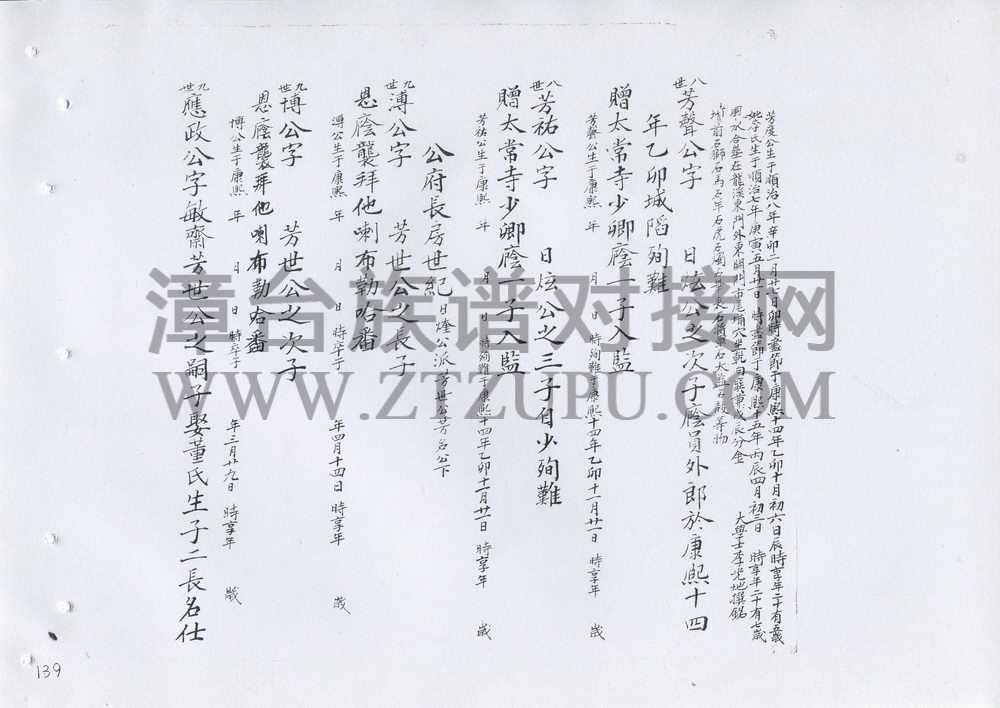 芳度公生于順治八年辛卯二月廿七日卯時盡節于康熙十四年乙卯十月初六日辰時享年二十有五歲
妣李氏生于順治七年庚寅五月廿一時盡節于康熙十五年丙辰四月初三日 時享年二十有七歲
風水合葬在龍溪東門外東關門市尾埔穴坐乾向巽兼戌辰分金 大學士李光地撰銘
墳前石獅石馬石羊石虎石燭
八世芳聲公字 日炫公之次子廕員外郎於康熙十四
年乙卯城陷殉難
贈太常寺少卿廕一子入監
芳聲公生于康熙 年 月 日 時殉難于康熙十四年乙卯十一月廿一日 時享年 歲
八世芳祐公字 日炫公之三子自少殉難
贈太常寺少卿廕一子入監
芳祐公生于康熙 年 月 日 時殉難于康熙十四年乙卯十一月廿一日 時享年 歲
公府長房世紀 日燈公派芳世公芳名公下
九世溥公字 芳世公之長子
恩廕襲拜他喇布勒哈番
溥公生于康熙 年 月 日 時卒于 年四月十四日 時享年 歲
九世博公字 芳世公之次子
恩廕襲拜他喇布勒哈番
博公生于康熙 年 月 日 時卒于 年三月廿九日 時享年 歲
九世應政公字敏齋芳世公之嗣子娶董氏生子二長名仕
139
漳台族谱对接网
WWW.ZTZUPU.COM